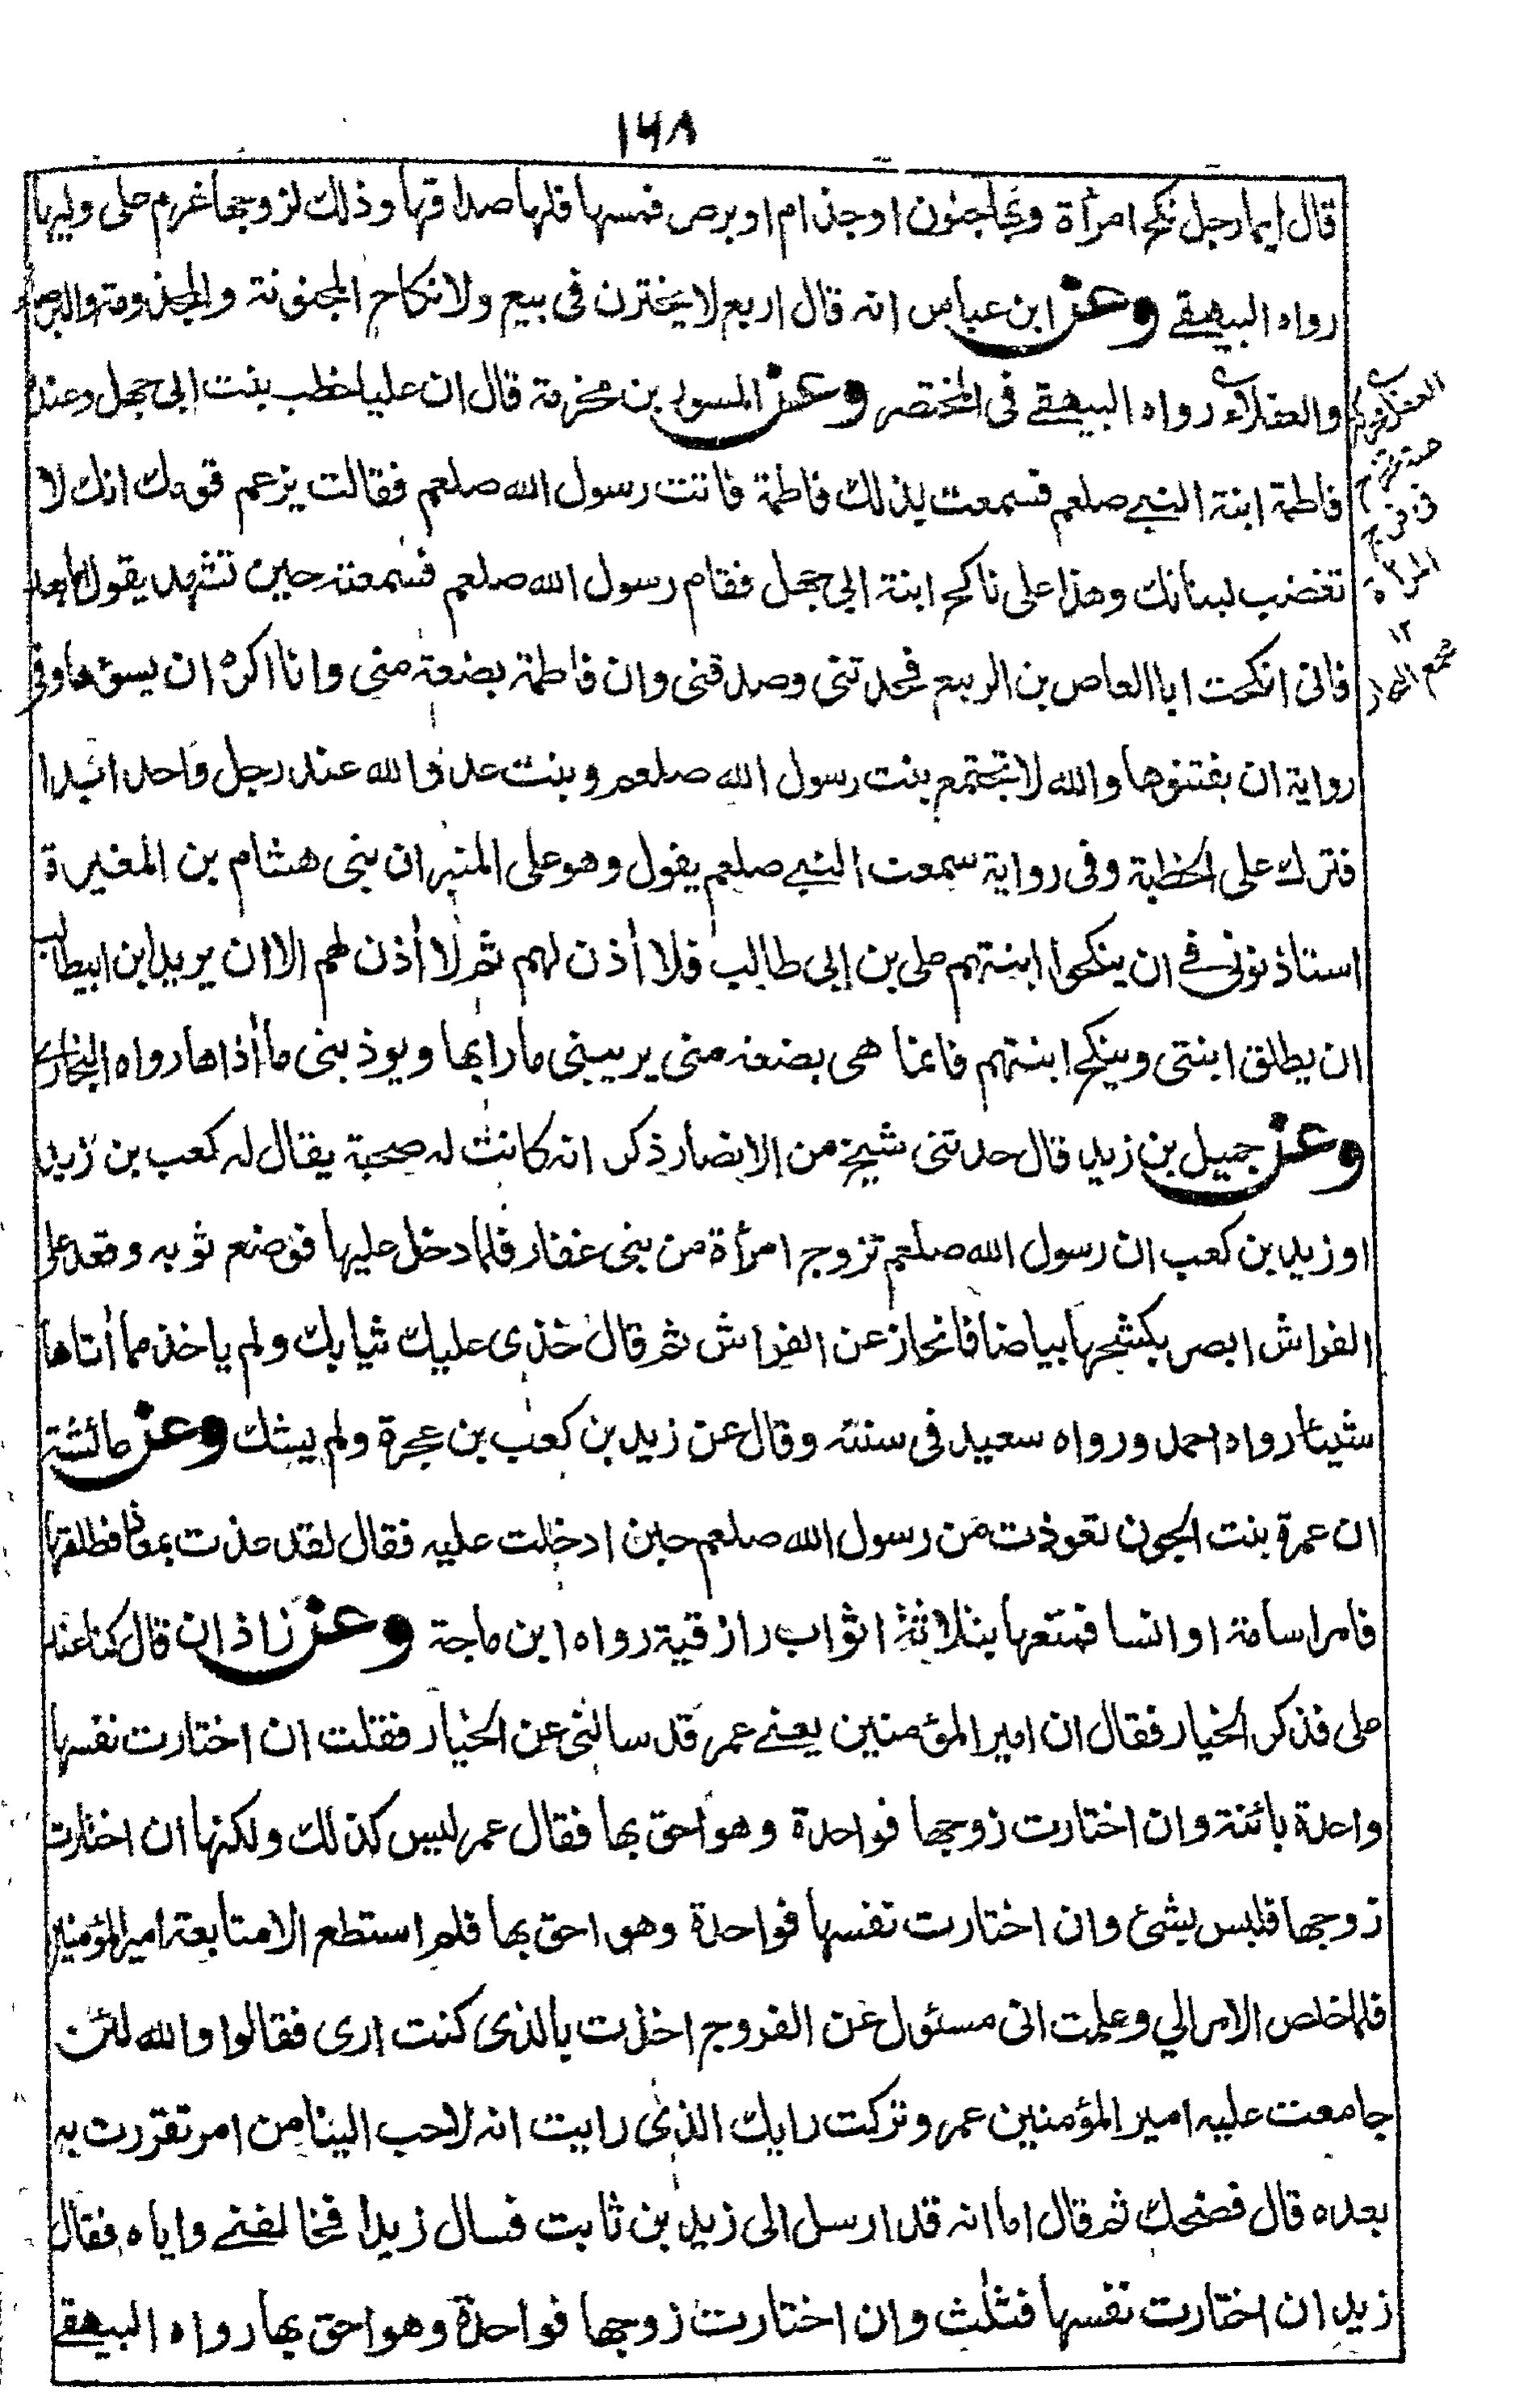 ۱۶۸
قال ايما رجل نكح امرأة وبها جنون او جذام او برص فمسها فلها صداقها وذلك لزوجها غرم على وليها
رواه البيهقے وعن ابن عباس انه قال اربع لا يجزن فى بيع ولا نكاح المجنونة والمجذومة والبرصاء
والعفلاء رواه البيهقے فى المختصر وعن المسور بن مخرمة قال ان عليا خطب بنت ابى جهل وعنده
فاطمة ابنة النبے صلعم فسمعت بذلك فاطمة فاتت رسول الله صلعم فقالت يزعم قومك انك لا
تغضب لبناتك وهذا على ناكح ابنة ابى جهل فقام رسول الله صلعم فسمعته حين تشهد يقول اما بعد
فانى انكحت ابا العاص بن الربيع فحدثنى وصدقنى وان فاطمة بضعة منى وانا اكره ان يسوءها وفى
رواية ان يفتنوها والله لا تجتمع بنت رسول الله صلعم وبنت عدو الله عند رجل واحد ابدا
فترك على الخطبة وفى رواية سمعت النبے صلعم يقول وهو على المنبر ان بنى هشام بن المغيرة
استاذنونى فے ان ينكحوا ابنتهم على بن ابى طالب فلا أذن لهم ثم لا أذن لهم الا ان يريد ابن ابيطالب
ان يطلق ابنتى وينكح ابنتهم فانما هى بضعة منى يريبنى ما رابها ويوذينى ما أذاها رواه البخارى
وعن جميل بن زيد قال حدثنى شيخ من الانصار ذكر انه كانت له صحبة يقال له كعب بن زيد
او زيد بن كعب ان رسول الله صلعم تزوج امرأة من بنى غفار فلما دخل عليها فوضع ثوبه وقعد على
الفراش ابصر بكشحها بياضا فانحاز عن الفراش ثم قال خذى عليك ثيابك ولم ياخذ مما أتاها
شيئا رواه احمد ورواه سعيد فى سننه وقال عن زيد بن كعب بن عجرة ولم يشك وعن عائشة
ان عمرة بنت الجون تعوذت من رسول الله صلعم حين ادخلت عليه فقال لقد عذت بمعاذ فطلقها
فامر اسامة او انسا فمتعها بثلاثة اثواب رازقية رواه ابن ماجة وعن زاذان قال كنا عند
على فذكر الخيار فقال ان امير المؤمنين يعنے عمر قد سالنى عن الخيار فقلت ان اختارت نفسها
واحدة بائنة وان اختارت زوجها فواحدة وهو احق بها فقال عمر ليس كذلك ولكنها ان اختارت
زوجها فليس بشئ وان اختارت نفسها فواحدة وهو احق بها فلم استطع الا متابعة امير المؤمنين
فلما خلص الامر الي وعلمت انى مسئول عن الفروج اخذت بالذى كنت ارى فقالوا والله لئن
جامعت عليه امير المؤمنين عمر وتركت رايك الذى رايت انه لاحب الينا من امر تفردت به
بعده قال فضحك ثم قال اما انه قد ارسل الى زيد بن ثابت فسال زيدا فخالفنے واياه فقال
زيد ان اختارت نفسها فثلث وان اختارت زوجها فواحدة وهو احق بها رواه البيهقے
فى فرج
المرأة
۱۲